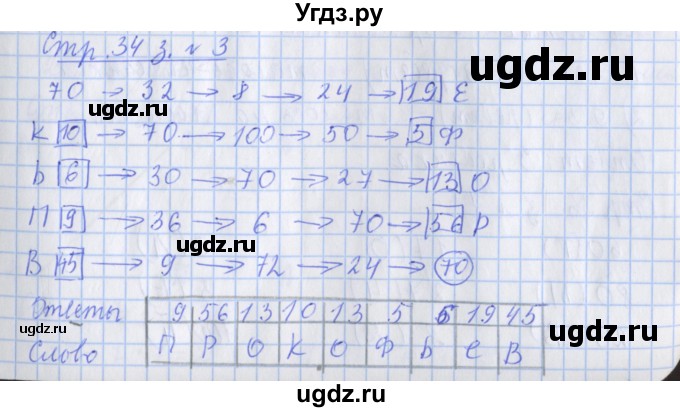 Угдз.ру
Стр. 34 з. №3
70 → 32 → 8 → 24 → 19 Е
К 10 → 70 → 100 → 50 → 5 Ф
Ь 6 → 30 → 70 → 27 → 13 О
П 9 → 36 → 6 → 70 → 56 Р
В 45 → 9 → 72 → 24 → 70
Ответы 9 56 13 10 13 5 6 19 45
Слово П Р О К О Ф Ь Е В
ugdz.ru
ugdz.ru
ugdz.ru
ugdz.ru
ugdz.ru
ugdz.ru
ugdz.ru
ugdz.ru